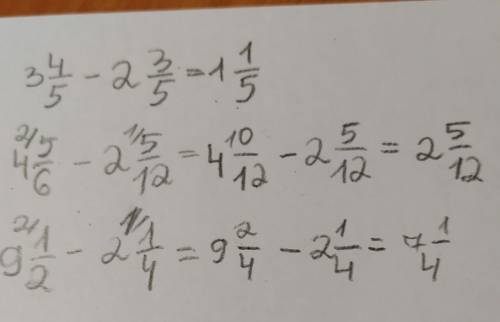 3 4/5 - 2 3/5 = 1 1/5
4 ²⁾5/6 - 2 ¹⁾5/12 = 4 10/12 - 2 5/12 = 2 5/12
9 ²⁾1/2 - 2 ¹⁾1/4 = 9 2/4 - 2 1/4 = 7 1/4